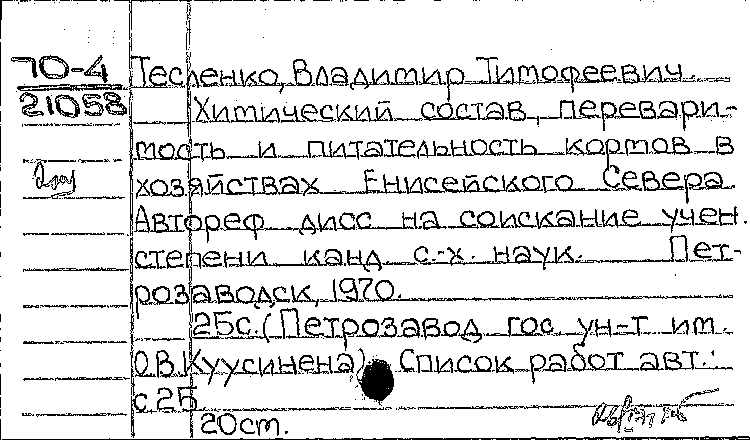 70-4
21058
Тесленко, Владимир Тимофеевич.
Химический состав, перевари-
мость и питательность кормов в
хозяйствах Енисейского Севера.
Автореф. дисс на соискание учен.
степени канд. с.-х. наук. Пет-
розаводск, 1970.
25с. (Петрозавод. гос. ун-т им.
О.В. Куусинена). Список работ авт.:
с.25
20см.